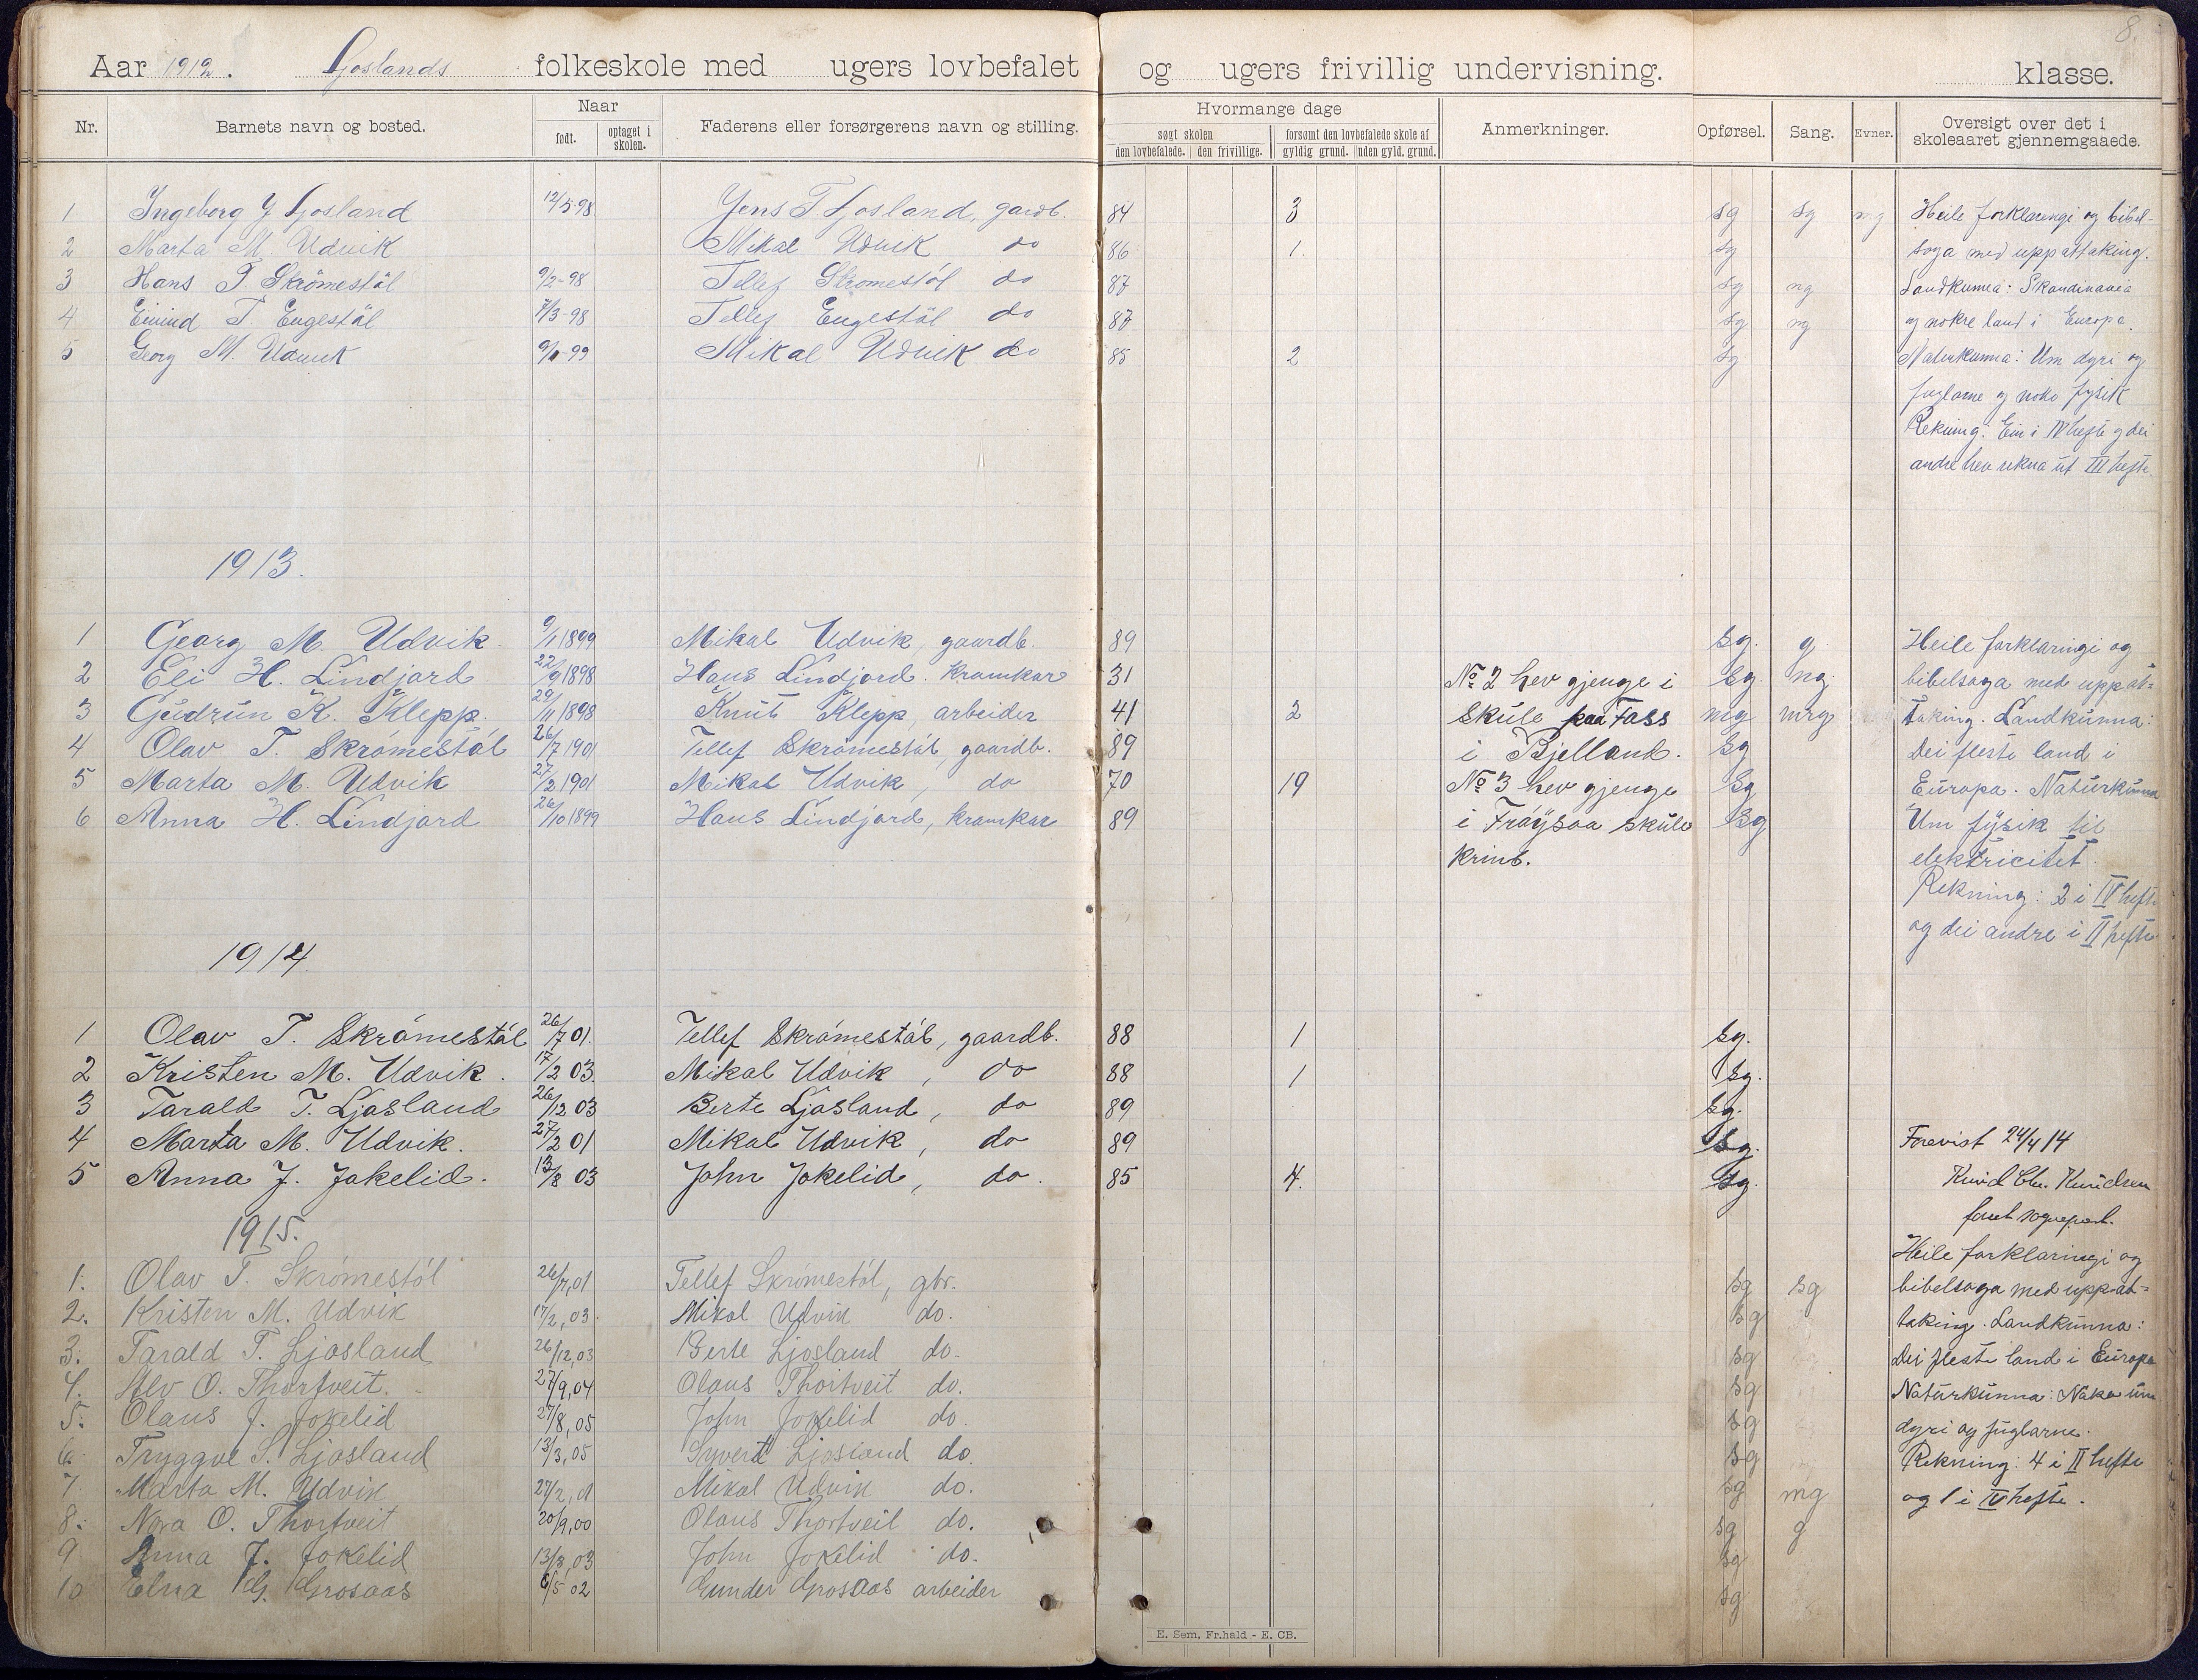 8.
Aar 1912. Ljoslands folkeskole med ugers lovbefalet og ugers frivillig undervisning. klasse.
Nr. Barnets navn og bosted. Naar født. optaget i skolen. Faderens eller forsørgerens navn og stilling. Hvormange dage søgt skolen den lovbefalede. den frivillige. forsømt den lovbefalede skole af gyldig grund. uden gyld. grund. Anmerkninger. Opførsel. Sang. Evner. Oversigt over det i skoleaaret gjennemgaaede.
1 Ingeborg J Ljosland 12/5 98 Jens T Ljosland, gardb. 84 3 sg sg mg Heile forklaringi og bibel-
2 Marta M. Udvik Mikal Udvik do 86 1. sg soga med uppattaking.
3 Hans T. Skrømestøl 9/2-98 Tellef Skromestøl do 87 sg ng Landkunna: Skandinavia
4 Eivind T. Engestøl 7/3-98 Tellef Engestøl do 87 sg ng og nokre land i Europa.
5 Georg M. Udvik 9/1-99 Mikal Udvik do 85 2 sg Naturkunna: Um dyri og
fuglarne og noko fysik
Rekning: Ein i IV hefte og dei
andre hev rekna ut III hefte.
1913.
1 Georg M. Udvik 9/1 1899 Mikal Udvik, gaardb. 89 sg. g. Heile forklaringi og
2 Eli H. Lindjord 22/9 1898 Hans Lindjord. Kramkar 31 No 2 hev gjenge i sg. ng. bibelsoga med uppat-
3 Gudrun K. Klepp. 29/11 1898 Knut Klepp, arbeider 41 2 skule paa Foss mg mrg taking. Landkunna:
4 Olav T. Skrømestøl 26/7 1901 Tellef Skrømestøl, gaardb. 89 i Bjelland. sg Dei fleste land i
5 Marta M. Udvik 27/2 1901 Mikal Udvik, do 70 19 No 3 hev gjenge sg Europa. Naturkunna
6 Anna H. Lindjord 26/10 1899 Hans Lindjord, kramkar 89 i Frøysaa skule sg Um fysik til
krins. elektricitet.
Rekning: 2 i IV hefte
og dei andre i II hefte
1914
1 Olav T. Skrømestøl 26/7 01. Tellef Skrømestøl, gaardb. 88 1 sg.
2 Kristen M. Udvik. 17/2 03. Mikal Udvik, do 88 1 sg.
3 Tarald T. Ljosland 26/12 03 Berte Ljosland, do 89 sg.
4 Marta M. Udvik. 27/2 01 Mikal Udvik, do 89 sg. Forevist 24/4 14
5 Anna J. Jokelid. 13/8 03 John Jokelid, do. 85 4. sg. Knud Chr. Knudsen
1915.
Heile forklaringi og
1. Olav T. Skrømestøl 26/7,01 Tellef Skrømestøl, gbr. sg sg bibelsoga med uppat-
2. Kristen M. Udvik 17/2,03. Mikal Udvik do. sg taking. Landkunna:
3. Tarald T. Ljosland 26/12,03 Berte Ljosland do. sg Dei fleste land i Europa
4. Alv O. Thortveit. 27/9,04 Olaus Thortveit do. sg Naturkunna: Noko um
5. Olaus J. Jokelid 27/8,05 John Jokelid do. sg dyri og fuglarne.
6. Tryggve S. Ljosland 13/3,05 Syvert Ljosland do. sg Rekning: 4 i II hefte
7. Marta M. Udvik 27/2,01 Mikal Udvik do. sg mg og 1 i IV hefte.
8. Nora O. Thortveit 20/9,00 Olaus Thortveit do. sg g
9 Anna J. Jokelid 13/8,03 John Jokelid do. sg
10 Elna G. Grosaas 6/5 02 Gunder Grosaas arbeider sg
E. Sem, Fr.hald - E. CB.